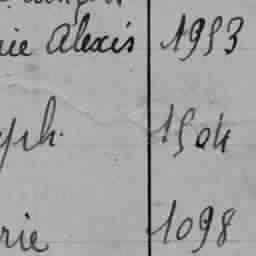 rie Alexis 1953
eph. 1504
rie 1098